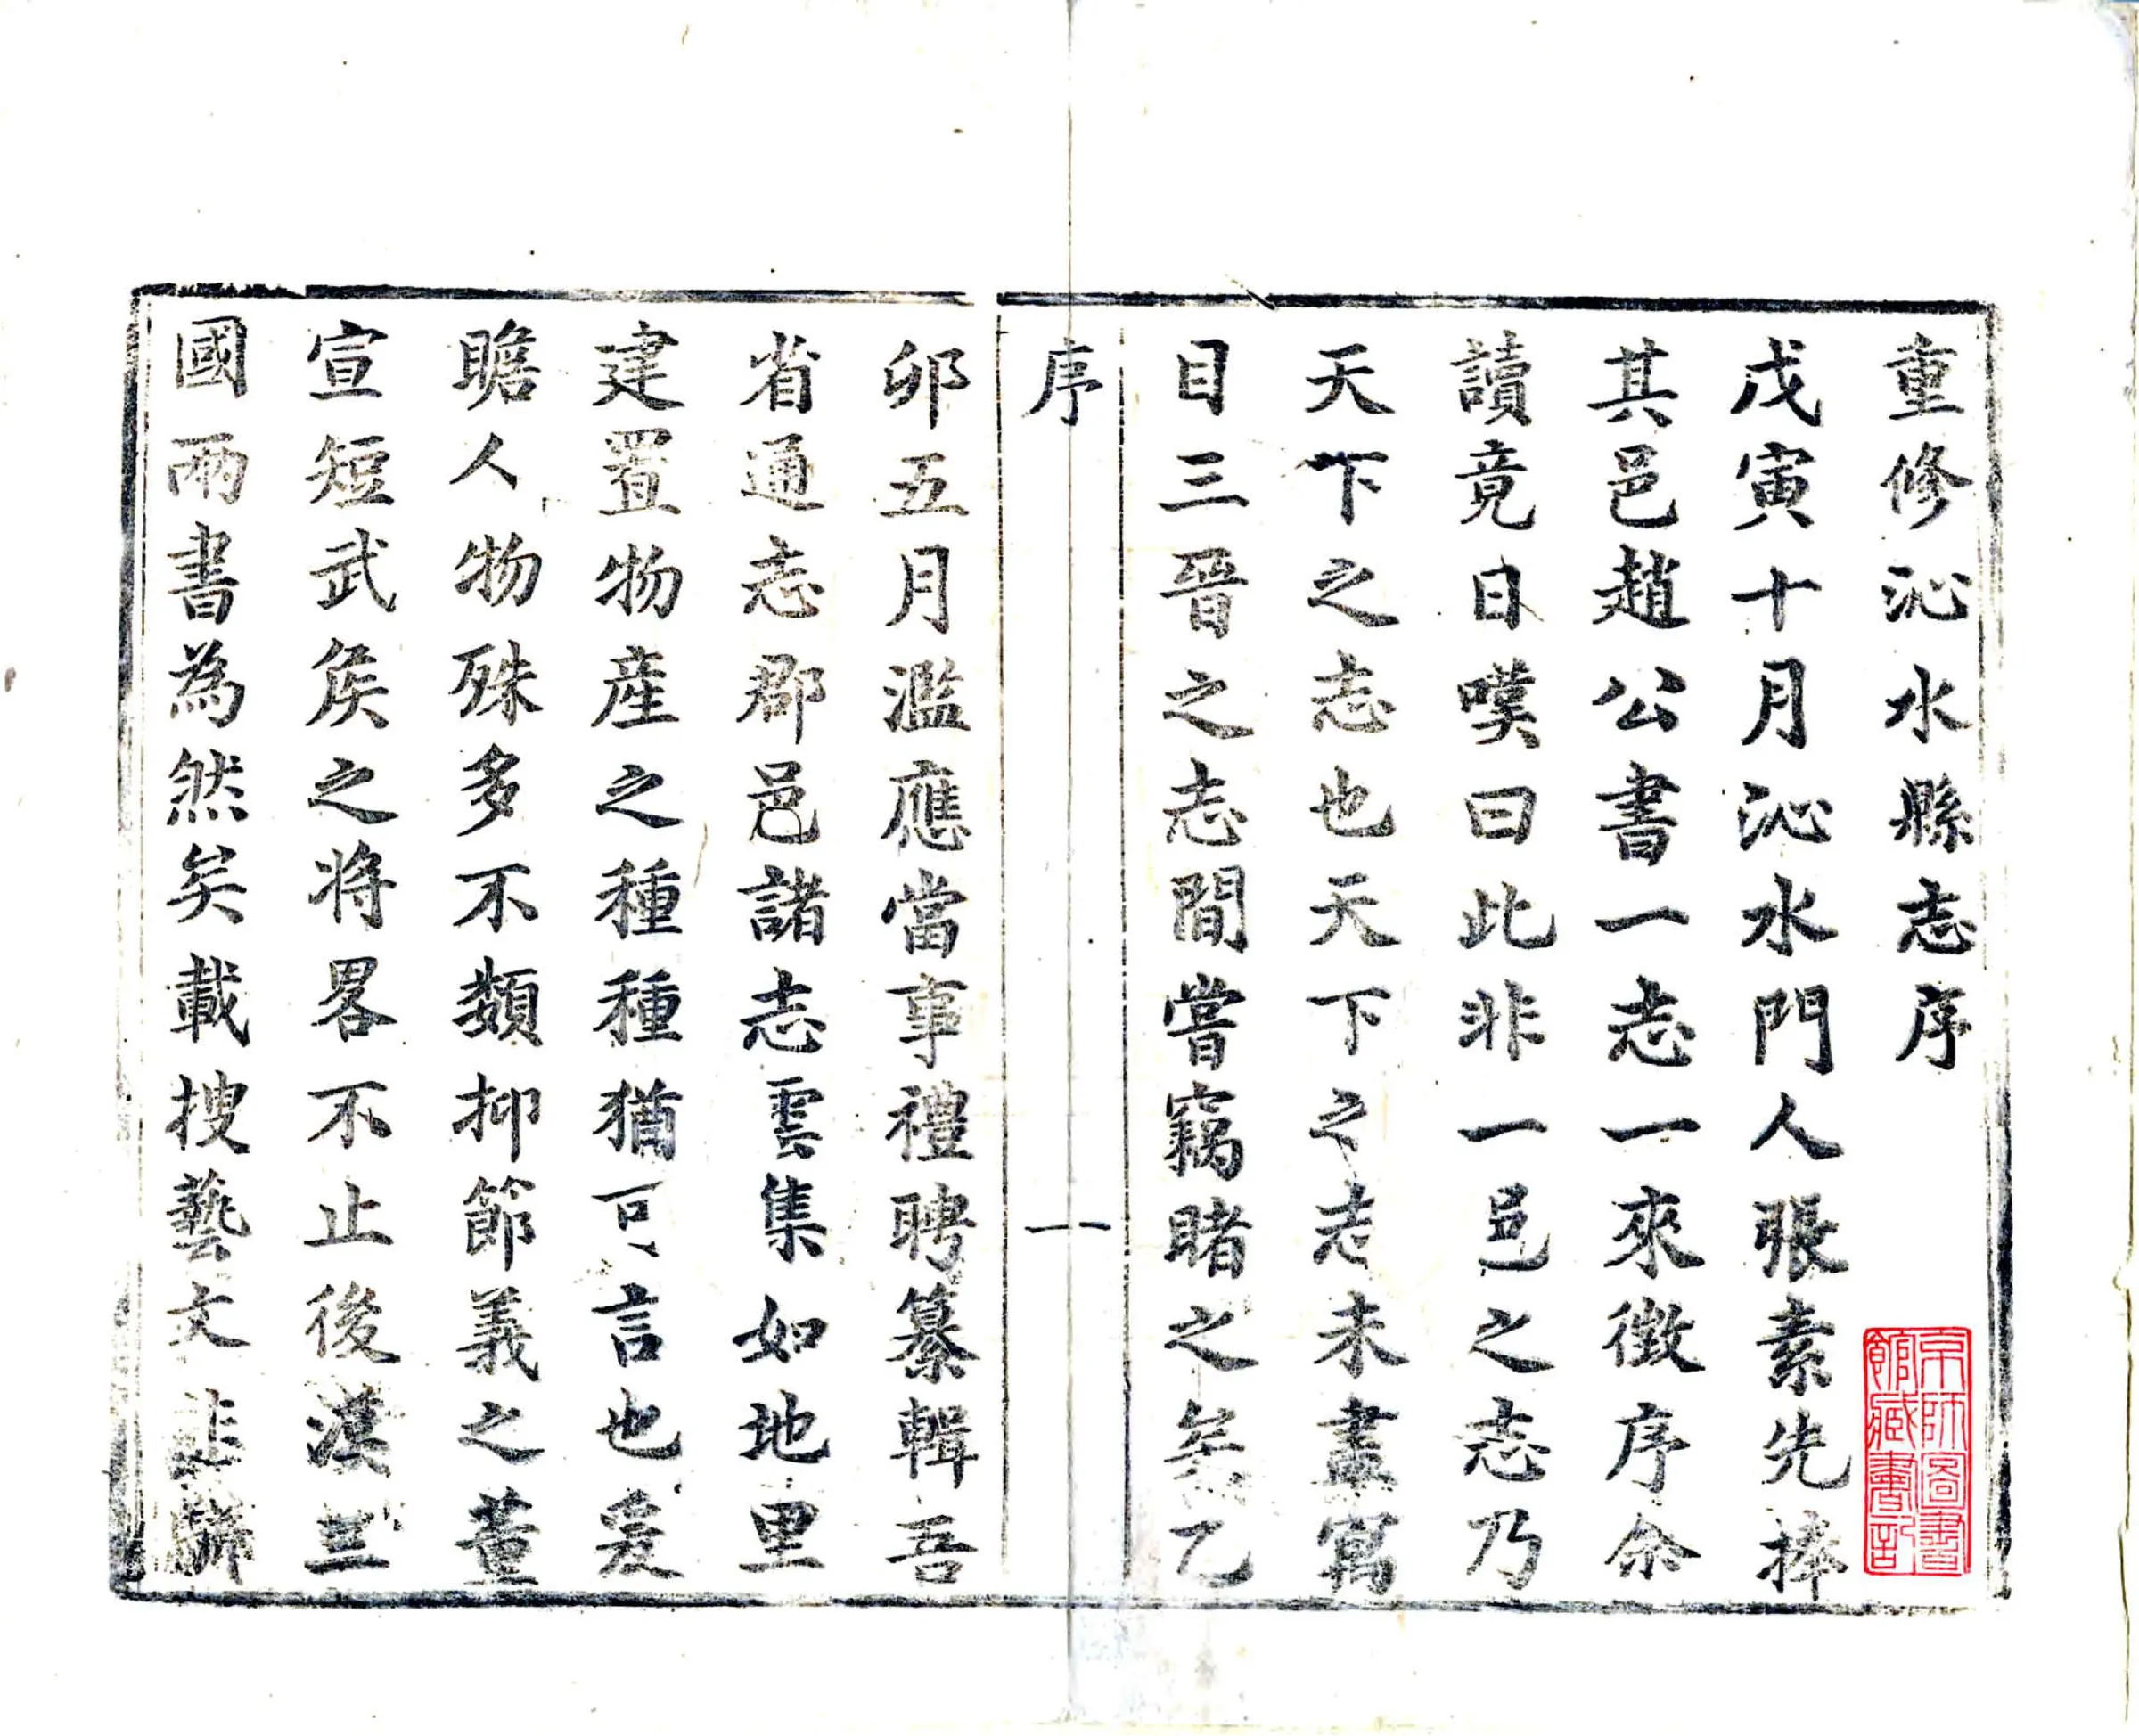 重修沁水縣志序
京師圖書
館藏書記
戊寅十月沁水門人張素先捧
其邑趙公書一志一來徵序余
讀竟日嘆曰此非一邑之志乃
天下之志也天天下之志未盡寓
目三晉之志間嘗竊睹之矣乙
序
一
卯五月濫應當事禮聘纂輯吾
省通志郡邑諸志雲集如地里
建置物産之種種猶可言也爰
瞻人物殊多不類抑節義之董
宣短武矦之将畧不止後漢三
國兩書為然矣載搜藝文非